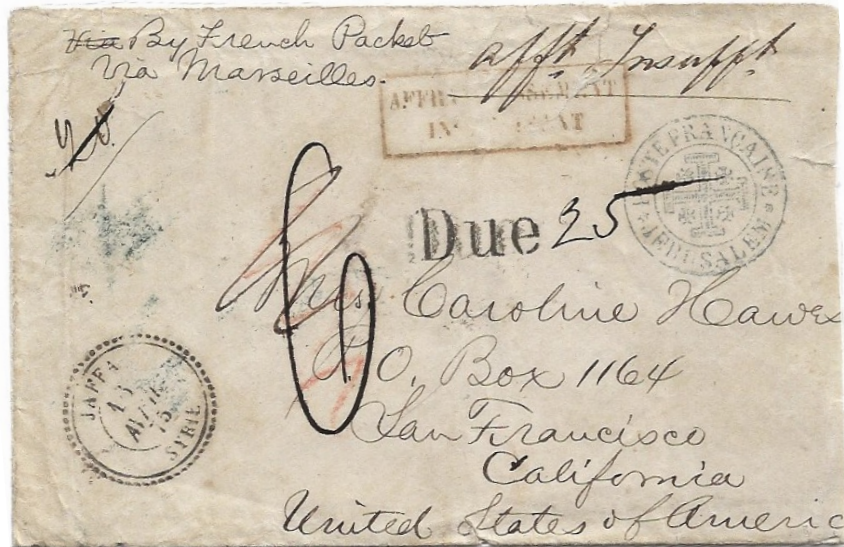 Via By French Packet
Via Marseilles.
Affṭ Insuffṭ
AFFRANCHISSEMENT
INSUFFISANT
POSTE FRANÇAISE
* JERUSALEM *
Due 25
6
Miss Caroline Hawes
P.O. Box 1164
San Francisco
California
United States of Americ
JAFFA
AVRIL
75
SYRIE